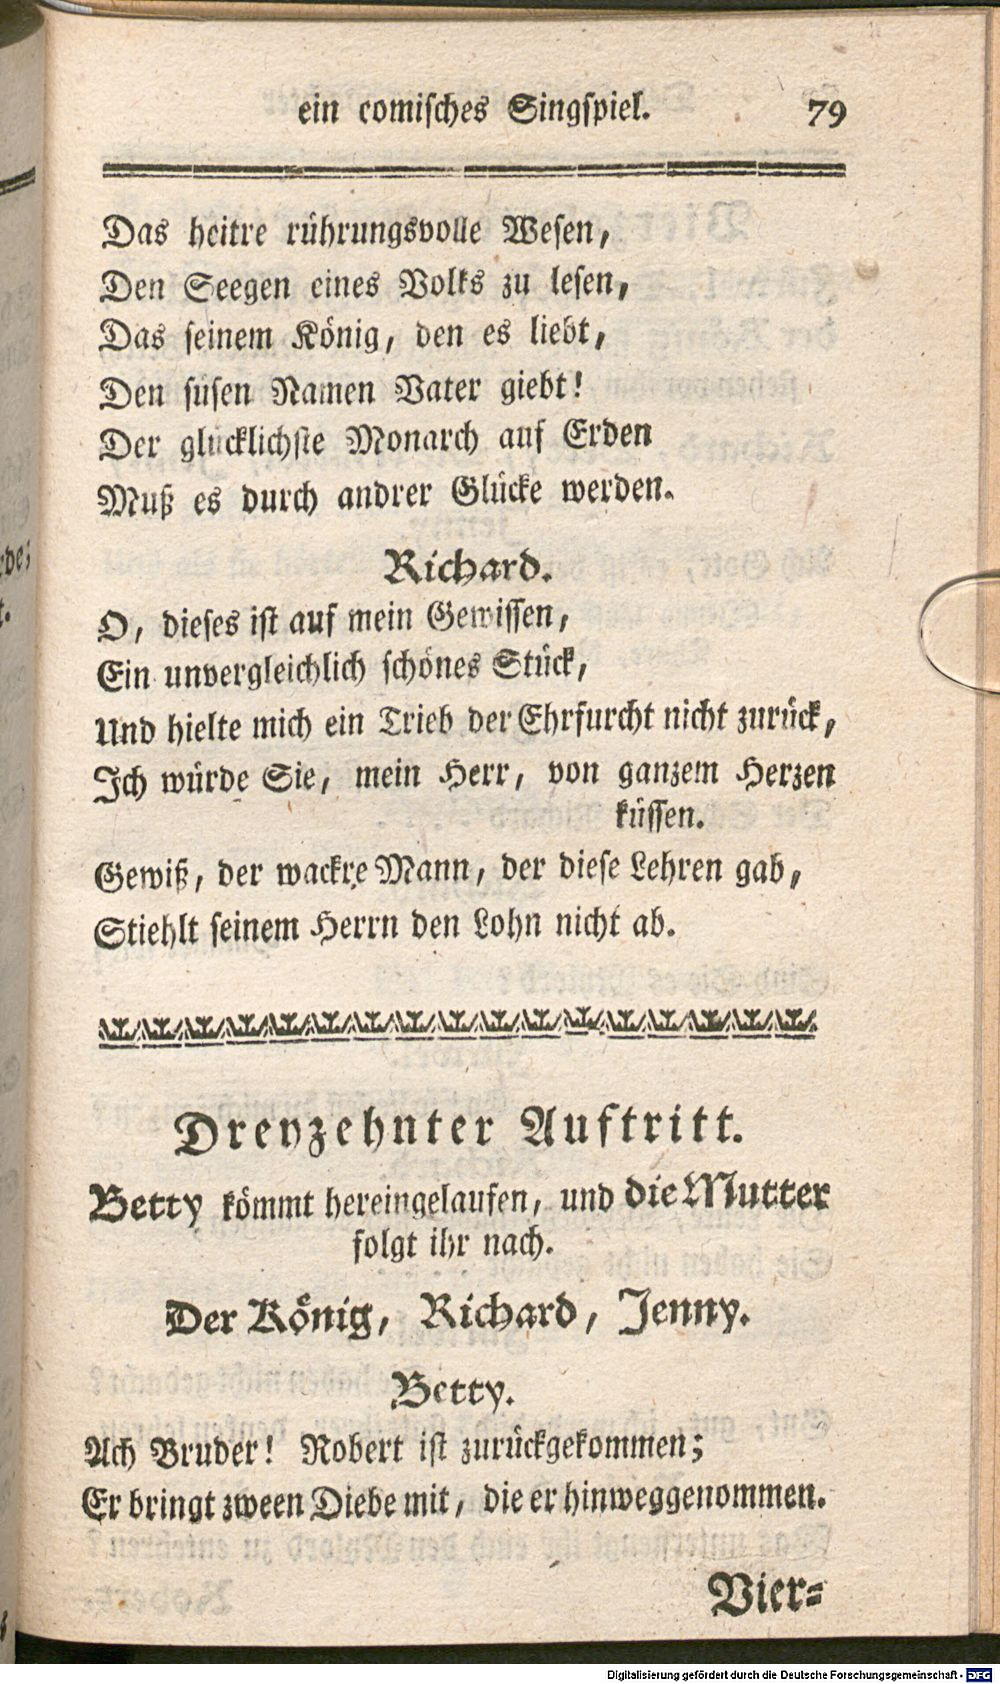 ein comisches Singspiel. 79
Das heitre rührungsvolle Wesen,
Den Seegen eines Volks zu lesen,
Das seinem König, den es liebt,
Den süsen Namen Vater giebt!
Der glücklichste Monarch auf Erden
Muß es durch andrer Glücke werden.
Richard.
O, dieses ist auf mein Gewissen,
Ein unvergleichlich schönes Stück,
Und hielte mich ein Trieb der Ehrfurcht nicht zurück,
Ich würde Sie, mein Herr, von ganzem Herzen
küssen.
Gewiß, der wackre Mann, der diese Lehren gab,
Stiehlt seinem Herrn den Lohn nicht ab.
Dreyzehnter Auftritt.
Betty kömmt hereingelaufen, und die Mutter
folgt ihr nach.
Der König, Richard, Jenny.
Betty.
Ach Bruder! Robert ist zurückgekommen;
Er bringt zween Diebe mit, die er hinweggenommen.
Vier-
Digitalisierung gefördert durch die Deutsche Forschungsgemeinschaft - DFG